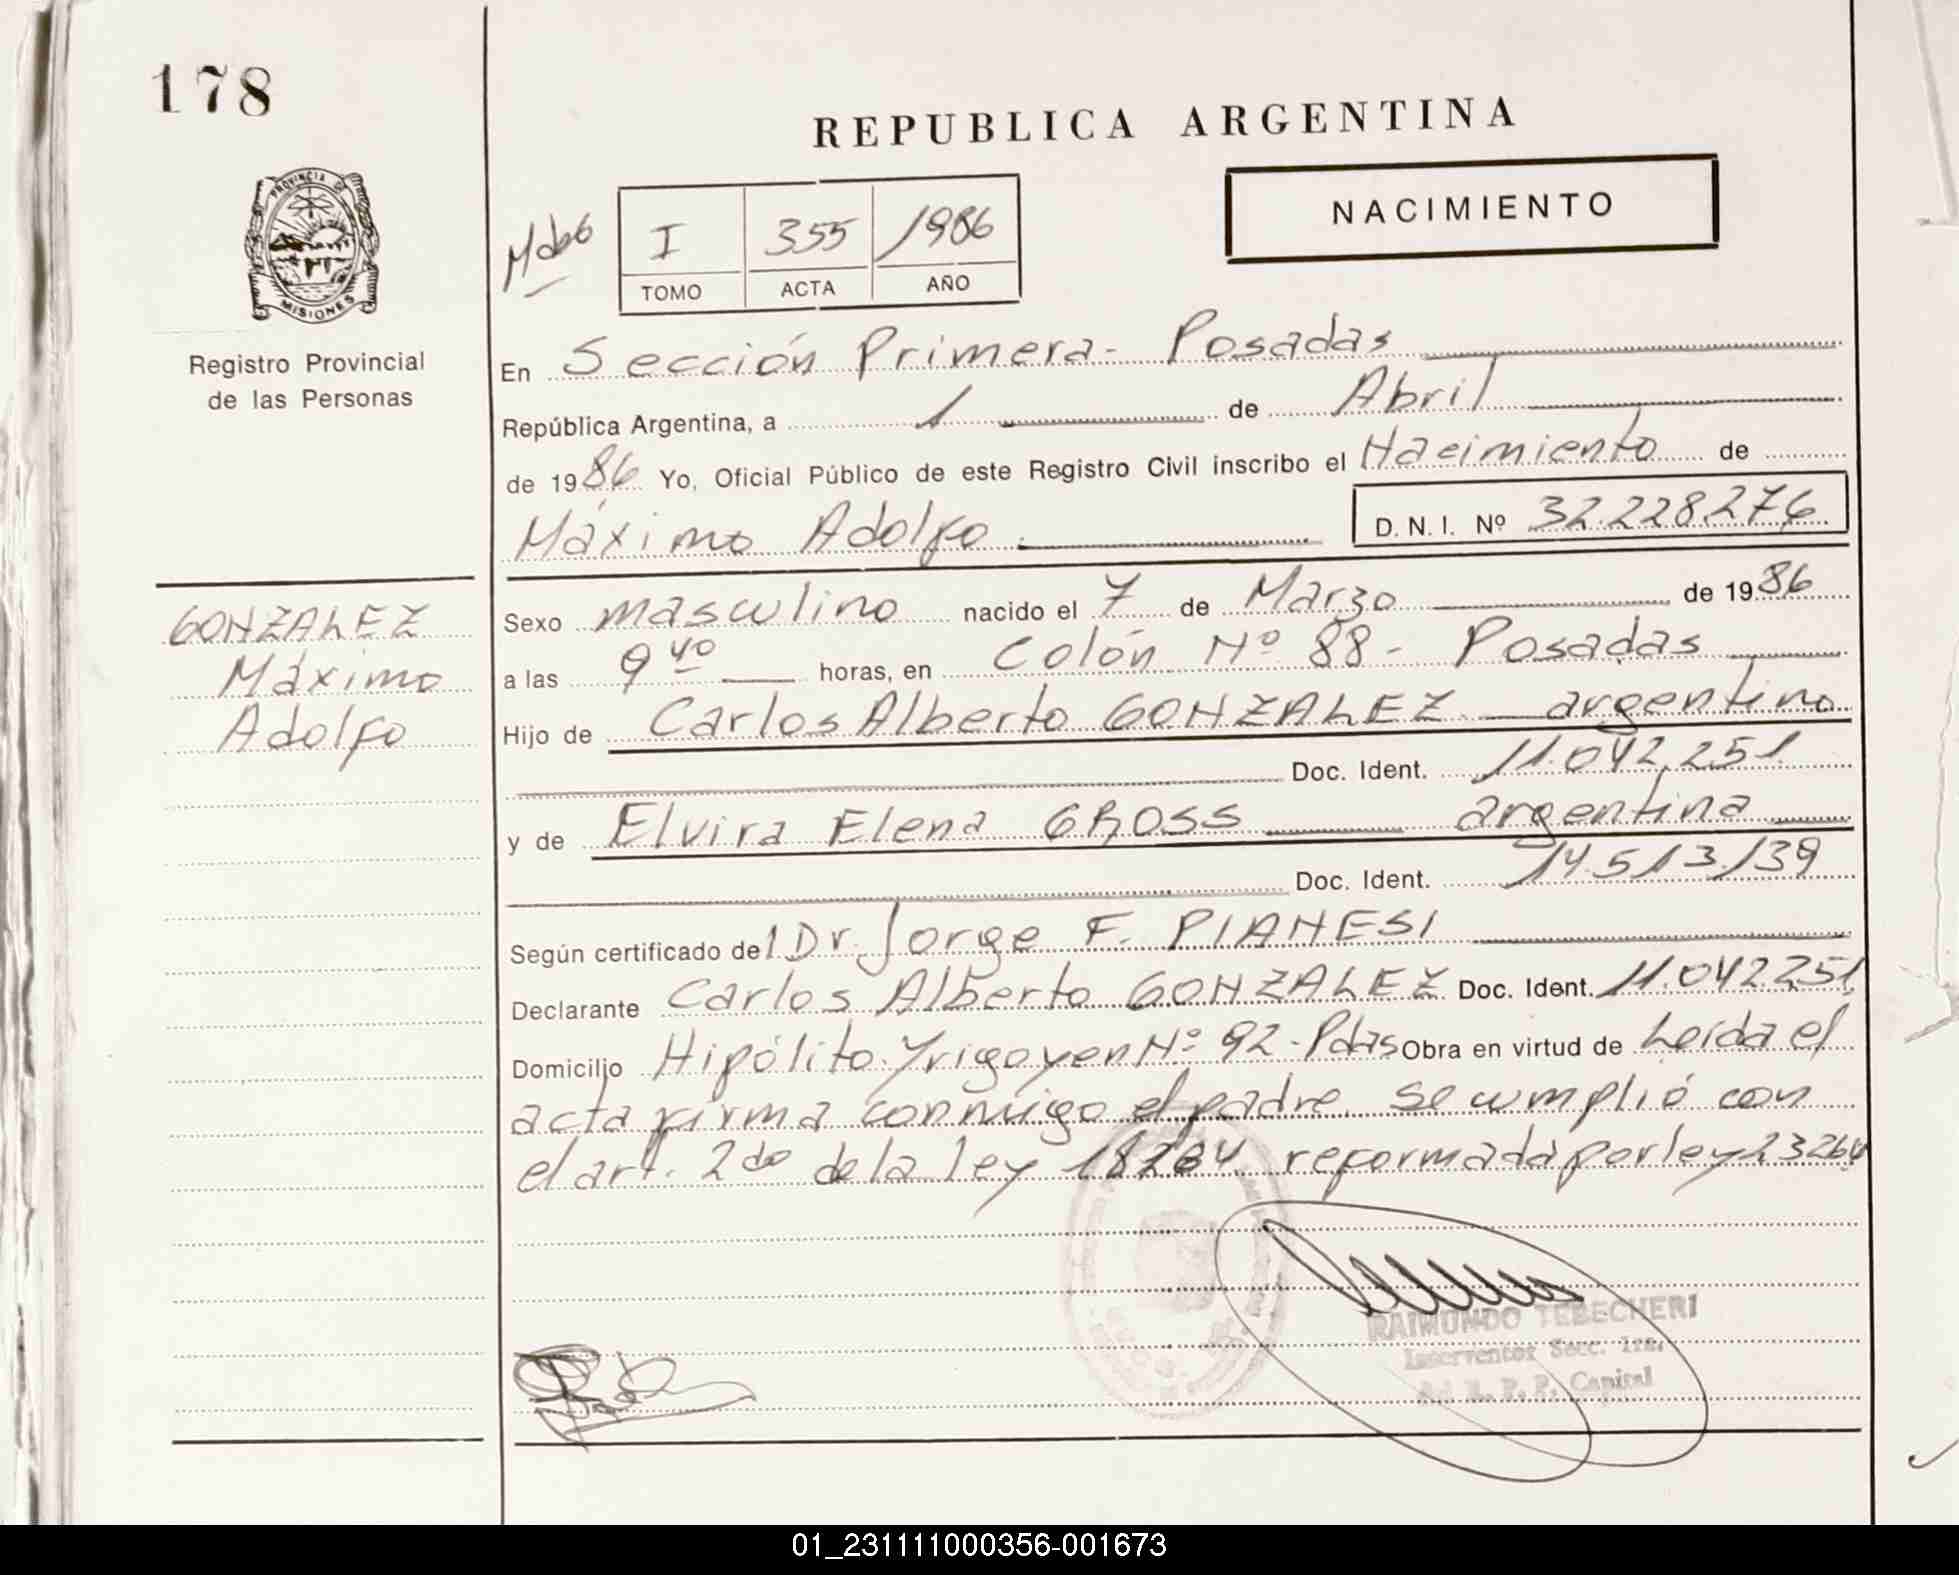 178
REPUBLICA ARGENTINA
NACIMIENTO
I 355 1986
TOMO ACTA AÑO
PROVINCIA DE
MISIONES
Registro Provincial
de las Personas
En Sección Primera - Posadas
República Argentina, a 1 de Abril
de 1986 Yo, Oficial Público de este Registro Civil inscribo el Nacimiento de
Máximo Adolfo
D.N.I. Nº 32.228.276
GONZALEZ
Máximo
Adolfo
Sexo masculino nacido el 7 de Marzo de 1986
a las 9 40 horas, en Colón Nº 88 - Posadas
Hijo de Carlos Alberto GONZALEZ argentino
Doc. Ident. 11.042.251
y de Elvira Elena GROSS argentina
Doc. Ident. 14.513.139
Según certificado del Dr. Jorge F. PIANESI
Declarante Carlos Alberto GONZALEZ Doc. Ident. 11.042251
Domicilio Hipólito Yrigoyen Nº 92 - Pdas Obra en virtud de Leída el
acta firma conmigo el padre. Se cumplió con
el art. 2do de la ley 18264 reformada por ley 23264
RAIMUNDO TEBECHERI
Interventor Secc. 1ra.
del R. P. P. Capital
01_231111000356-001673